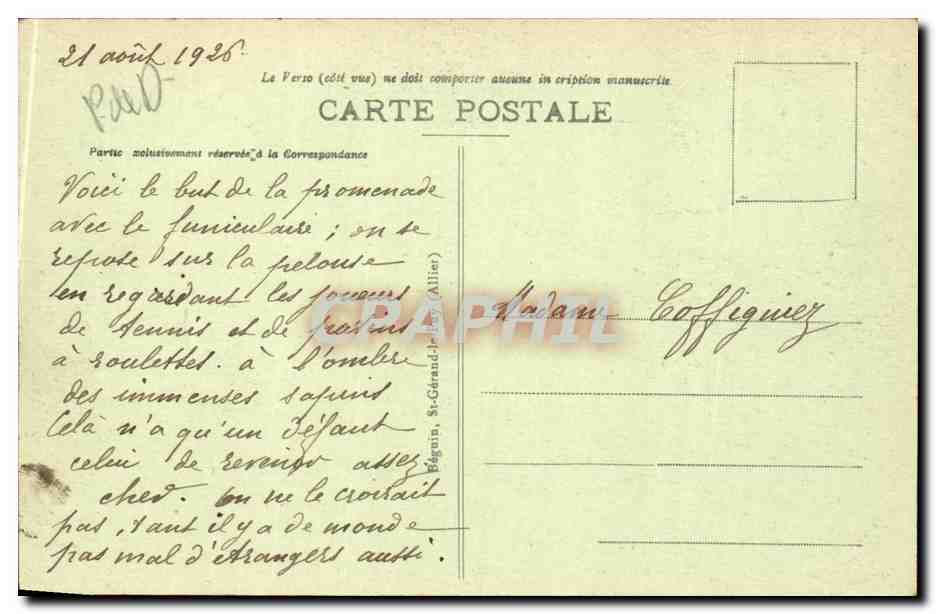 21 août 1926
P. de D
Le Verso (côté vue) ne doit comporter aucune in cription manuscrite
CARTE POSTALE
Partie xclusivement réservée à la Correspondance
Voici le but de la promenade
avec le funiculaire ; on se
repose sur la pelouse
en regardant les joueurs
de tennis et de patins
à roulettes. à l'ombre
des immenses sapins
Celà n'a qu'un défaut
celui de revenir assez
cher. on ne le croirait
pas, tant il y a de monde
pas mal d'étrangers aussi.
Béguin, St-Gérand-le-Puy (Allier)
Madame Coffiginez
CPAPHIL